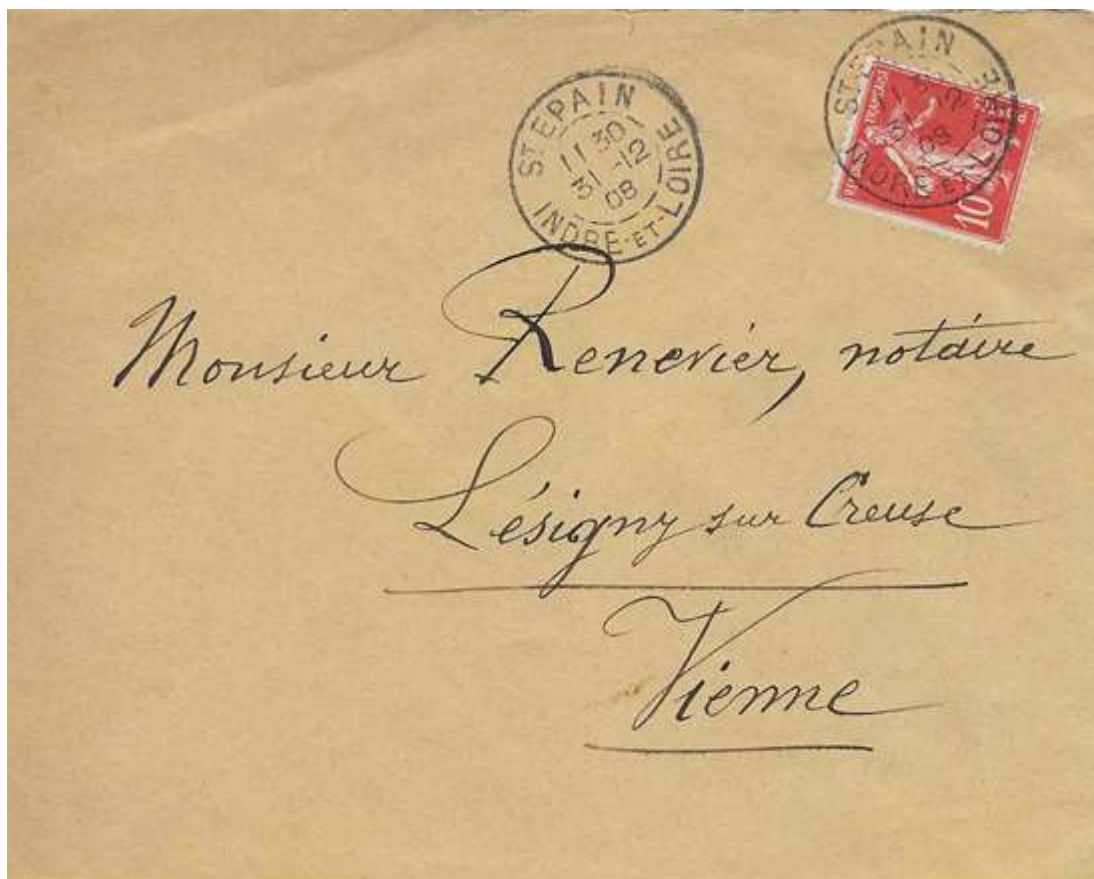 ST EPAIN
11 30
31 -12
08
INDRE-ET-LOIRE
ST EPAIN
08
10
Monsieur Renevier, notaire
Lésigny sur Creuse
Vienne